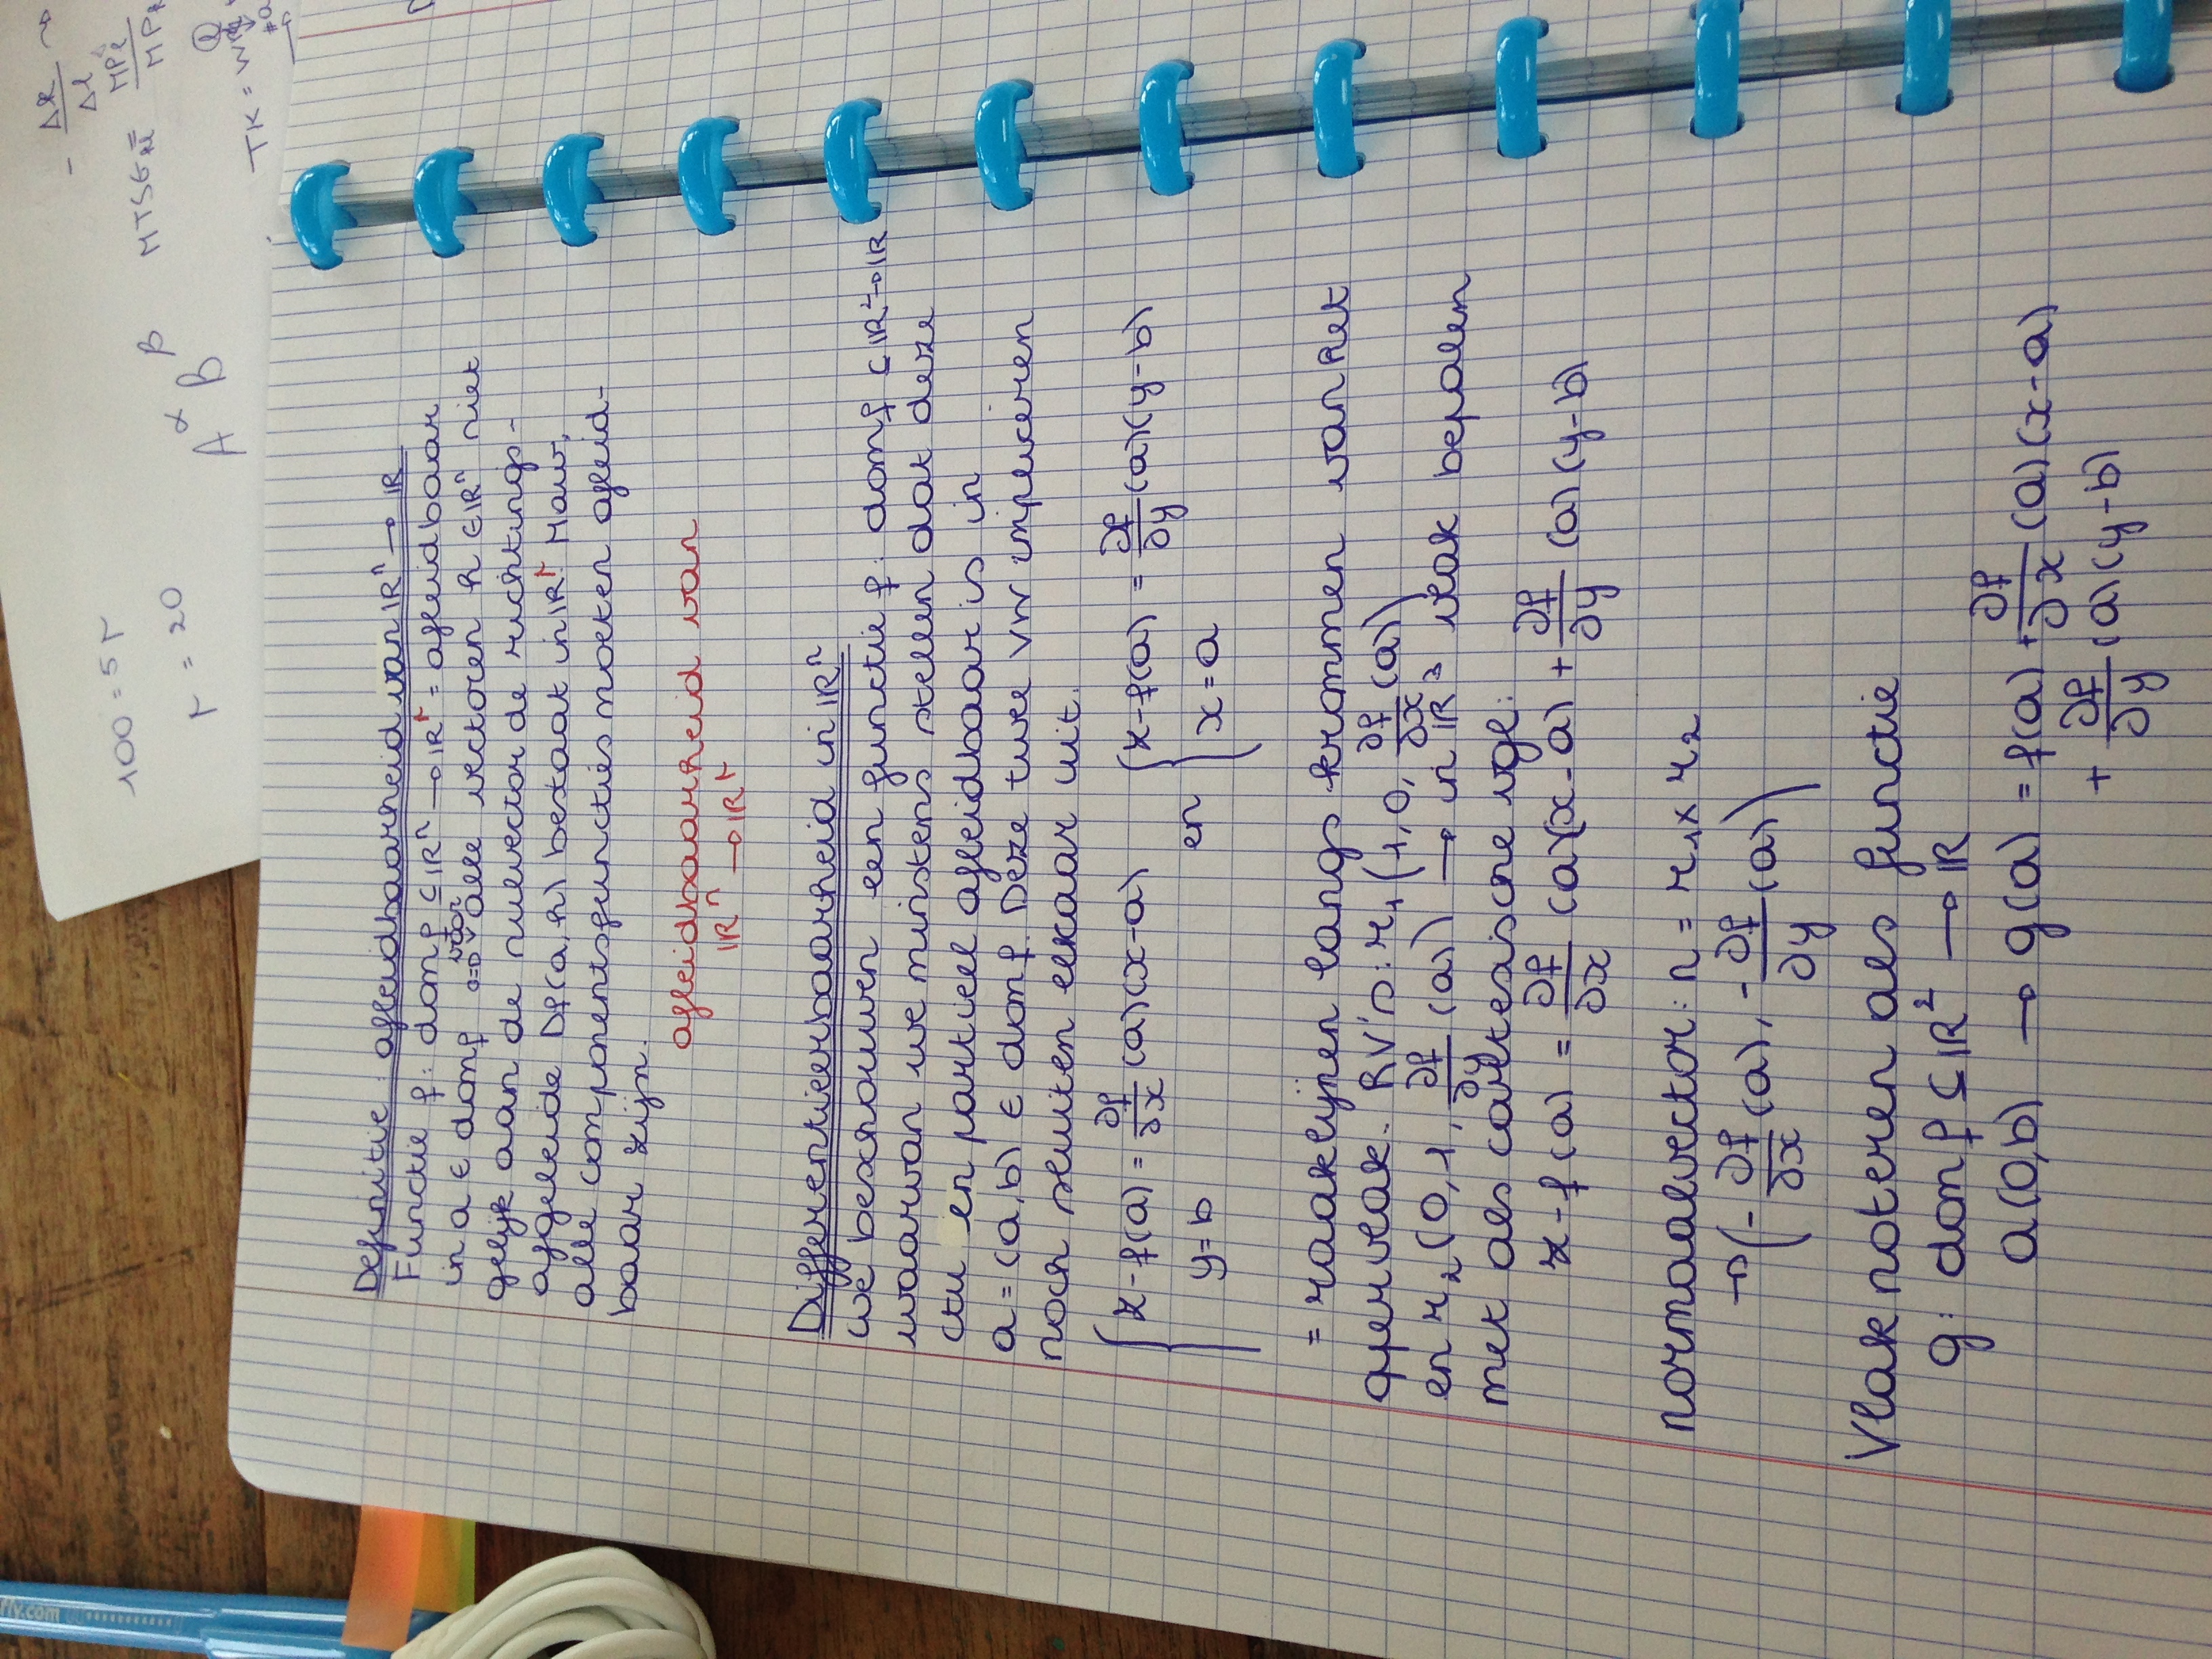 Definitie afleidbaarheid van ℝⁿ → ℝ
Functie f: dom f ⊆ ℝⁿ → ℝʳ = afleidbaar
in a ∈ dom f ⇔ voor alle vectoren h ∈ ℝⁿ niet
gelijk aan de nulvector de richtings-
afgeleide Df(a,h) bestaat in ℝʳ. M.a.w,
alle componentsfuncties moeten afleid-
baar zijn.
afleidbaarheid van
ℝⁿ → ℝʳ
Differentieerbaarheid in ℝⁿ
we beschouwen een functie f: dom f ⊆ ℝ² → ℝ
waarvan we minstens stellen dat deze
ctu en partieel afleidbaar is in
a = (a,b) ∈ dom f. Deze twee vwn impliceren
noch sluiten elkaar uit.
{ z - f(a) = ∂f/∂x (a)(x-a) en { z - f(a) = ∂f/∂y (a)(y-b)
y = b x = a
= raaklijnen langs krommen van het
oppervlak. RV's: r₁(1, 0, ∂f/∂x (a))
en r₂(0, 1, ∂f/∂y (a)) → in ℝ³ vlak bepalen
met als cartesische vgl:
z - f(a) = ∂f/∂x (a)(x-a) + ∂f/∂y (a)(y-b)
normaalvector: n = r₁ x r₂
→ (-∂f/∂x (a), -∂f/∂y (a))
Vlak noteren als functie
g: dom f ⊆ ℝ² → ℝ
a(0,b) → g(a) = f(a) + ∂f/∂x (a)(x-a)
+ ∂f/∂y (a)(y-b)
100 = 5r
r = 20
A^α B^β
-Δk/Δl
MPl
TK = w
fly.com